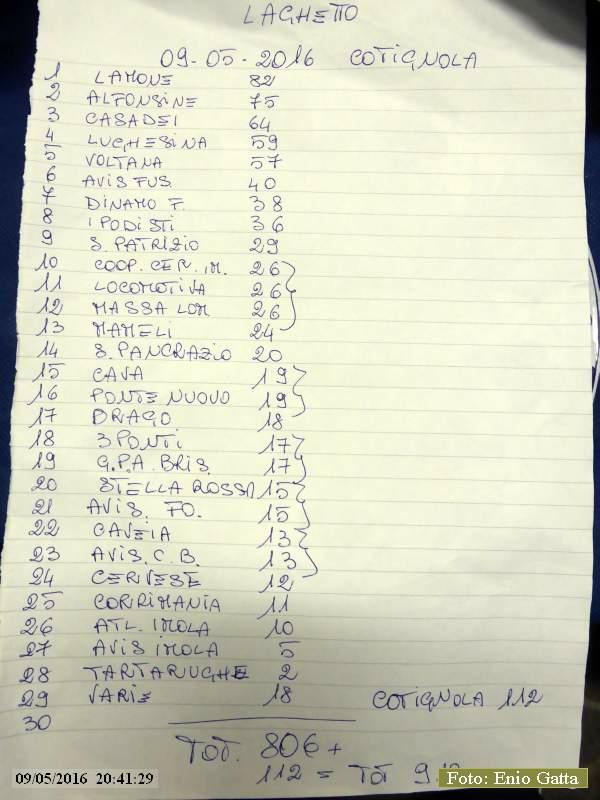 LAGHETTO
09-05-2016 COTIGNOLA
1 LAMONE 82
2 ALFONSINE 75
3 CASADEI 64
4 LUGHESINA 59
5 VOLTANA 57
6 AVIS FUS. 40
7 DINAMO F. 38
8 IPODISTI 36
9 S. PATRIZIO 29
10 COOP. CER. IM. 26
11 LOCOMOTIVA 26
12 MASSA LOM 26
13 MAMELI 24
14 S. PANCRAZIO 20
15 CAVA 19
16 PONTE NUOVO 19
17 DRAGO 18
18 3 PONTI 17
19 G.P.A. BRIS. 17
20 STELLA ROSSA 15
21 AVIS. FO. 15
22 CAVEIA 13
23 AVIS. C.B. 13
24 CERVESE 12
25 CORRIMANIA 11
26 ATL. IMOLA 10
27 AVIS IMOLA 5
28 TARTARUGHE 2
29 VARIE 18 COTIGNOLA 112
30
TOT. 806 +
112 = TOT
09/05/2016 20:41:29
Foto: Enio Gatta